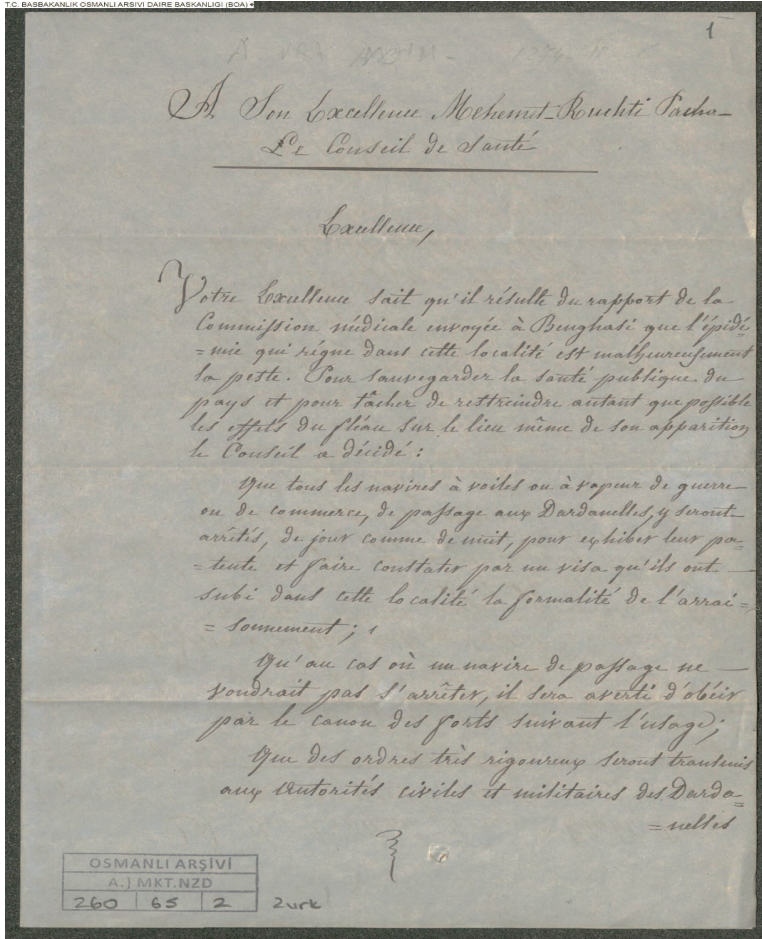 T.C. BASBAKANLIK OSMANLI ARSIVI DAIRE BASKANLIGI (BOA)
1
A Son Excellence Mehemet-Ruchti Pacha
Le Conseil de Santé
Excellence,
Votre Excellence sait qu'il résulte du rapport de la
Commission médicale envoyée à Benghasi que l'épidé-
=mie qui règne dans cette localité est malheureusement
la peste. Pour sauvegarder la santé publique du
pays et pour tâcher de restreindre autant que possible
les effets du fléau sur le lieu même de son apparition
le Conseil a décidé :
Que tous les navires à voiles ou à vapeur de guerre
ou de commerce, de passage aux Dardanelles, y seront
arrêtés, de jour comme de nuit, pour exhiber leur pa-
=tente et faire constater par un visa qu'ils ont
subi dans cette localité la formalité de l'arrai=
=sonnement ;
Qu'au cas où un navire de passage ne
voudrait pas s'arrêter, il sera averti d'obéir
par le canon des forts suivant l'usage ;
Que des ordres très rigoureux seront transmis
aux Autorités civiles et militaires des Darda=
=nelles
OSMANLI ARŞİVİ
A.} MKT.NZD
260 65 2 2urk